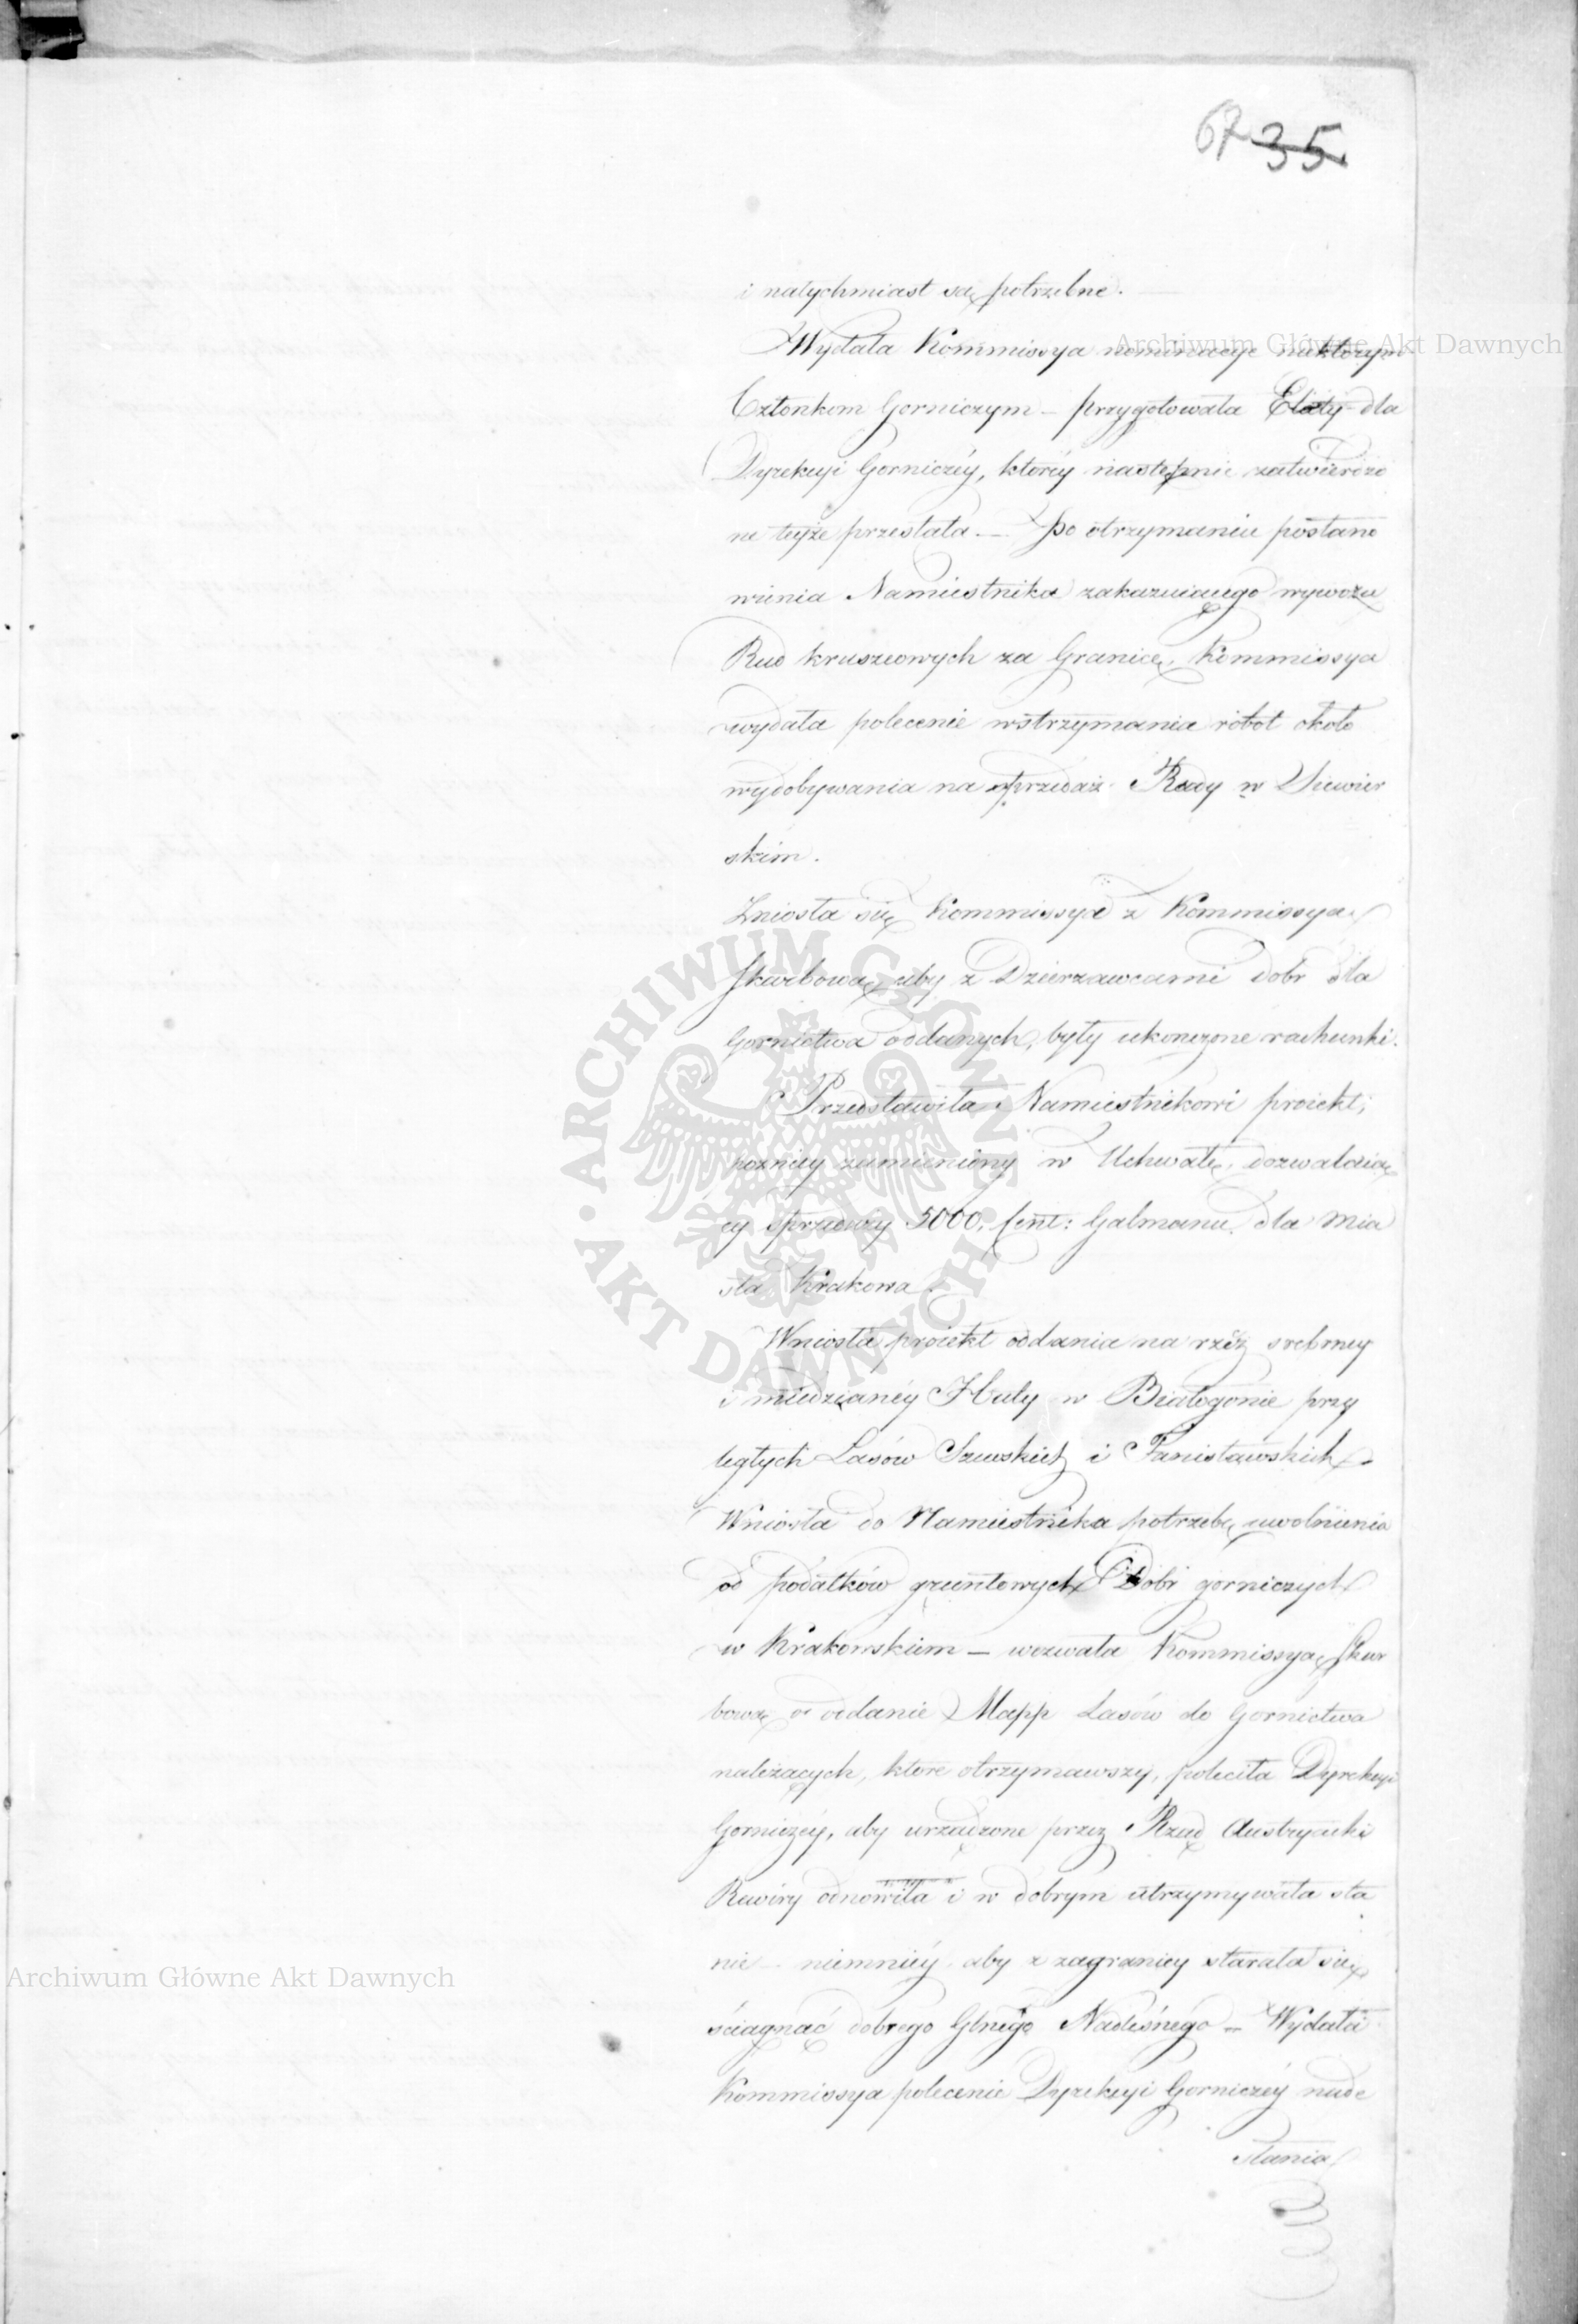 67 35
i natychmiast są potrzebne.
Wydała Kommissya nominacye niektórym
Członkom Gorniczym – przygotowała Etaty dla
Dyrekcyi Gorniczéy, któréy następnie zatwierdzo
ne teyże przesłała. – Po otrzymaniu postano
wienia Namiestnika zakazuiącego wywozu
Rud kruszcowych za Granicę, Kommissya
wydała polecenie wstrzymania robot około
wydobywania na sprzedaż Rudy w Siewier
skim.
Zniosła się Kommissya z Kommissyą
Skarbową, aby z Dzierzawcami dobr dla
Gornictwa oddanych, były ukończone rachunki.
Przedstawiła Namiestnikowi proiekt,
poznièy zamieniony w Uchwałę, dozwalaią
cy sprzedaży 5000, Cent: Galmanu dla Mia
sta Krakowa.
Wniosła proiekt oddania na rzecz srebrney
i miedzianéy Huty w Białogonie przy
ległych Lasów Szewskich i Tanisławskich
Wniosła do Namiestnika potrzebę uwolnienia
od podatków gruntowych Dobr gorniczych
w Krakowskiem – wezwała Kommissyą Skar
bową o oddanie Mapp Lasów do Gornictwa
należących, które otrzymawszy, poleciła Dyrekcyi
Gorniczéy, aby urządzone przez Rząd Austryacki
Rewiry odnowiła i w dobrym utrzymywała sta
nie – niemniéy aby z zagranicy starała się
ściągnąć dobrego Głnego Nadleśnego – Wydała
Kommissya polecenie Dyrekcyi Gorniczéy nade
słania
Archiwum Główne Akt Dawnych
Archiwum Główne Akt Dawnych
ARCHIWUM GŁÓWNE · AKT DAWNYCH ·